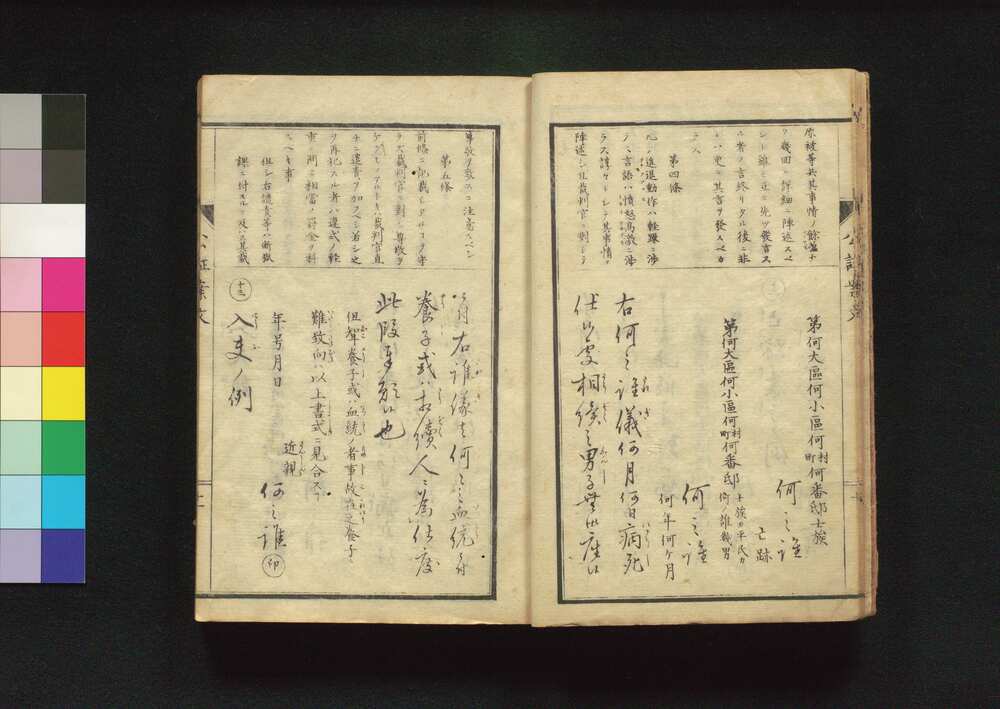 原被等共其事情ノ餘蘊ナ
ク幾回モ詳細ニ陳述スベ
シト雖モ互ニ先ツ發言ス
ル者ノ言終リタル後ニ非
レハ更ニ其言ヲ發スベカ
ラス
第四條
凡ソ進退動作ハ軽躁ニ渉
リ言語ハ憤怒高激ニ渉
ラス諄々トシテ其事情ヲ
陳述シ且裁判官ニ對シテ
第何大區何小區何村町何番邸士族
何之誰
亡跡
第何大區何小區何村町何番邸
士族カ平民カ
何ノ誰幾男
何之誰
何年何ヶ月
右何之誰儀何月何日病死
仕候處相續之男子無御座候
尊敬ヲ致スニ注意スベシ
第五條
前條ニ記載シタルコヲ守
ラス裁判官ニ對シ尊敬ヲ
裁判官直
チニ譴責ヲ加フベシ若シ之
ヲ再犯スル者ハ違式ノ軽
重ヲ問ヒ相當ノ罰金ヲ科
スヘキ事
但シ右譴責等ハ断獄
課ニ付スルニ及ハス其裁
間右誰儀者何之血統ニ付
養子或ハ相續人ニ為仕度
此段奉願候也
但聟養子或ハ血統ノ者事故有之養子ニ
難致向ハ以上書式ニ見合スヘシ
年号月日
近親
何之誰
印
十三
入夫ノ例
公証案文